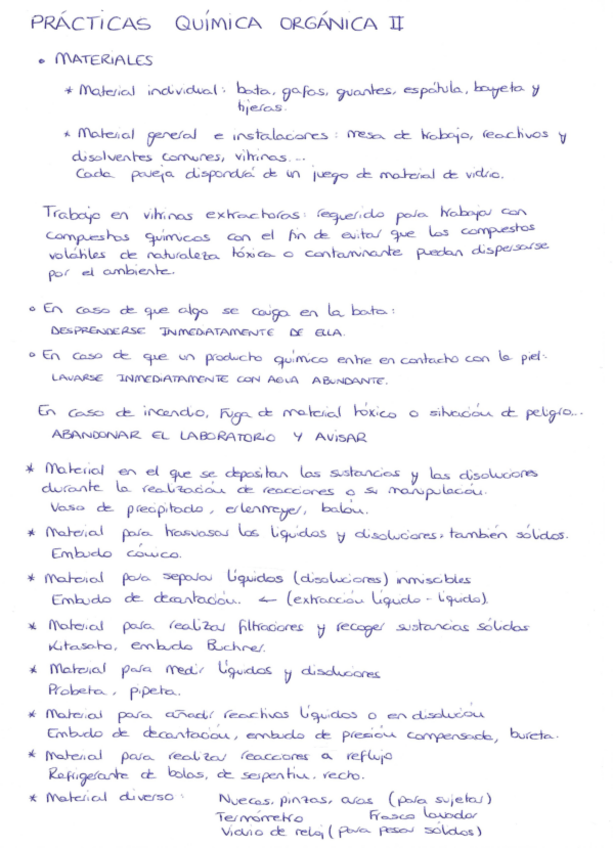 PRÁCTICAS QUÍMICA ORGÁNICA II
• MATERIALES
* Material individual: bata, gafas, guantes, espátula, bayeta y
tijeras.
* Material general e instalaciones: mesa de trabajo, reactivos y
disolventes comunes, vitrinas...
Cada pareja dispondrá de un juego de material de vidrio.
Trabajo en vitrinas extractoras: requerido para trabajar con
compuestos químicos con el fin de evitar que los compuestos
volátiles de naturaleza tóxica o contaminante puedan dispersarse
por el ambiente.
• En caso de que algo se caiga en la bata:
DESPRENDERSE INMEDIATAMENTE DE ELLA.
• En caso de que un producto químico entre en contacto con la piel:
LAVARSE INMEDIATAMENTE CON AGUA ABUNDANTE.
En caso de incendio, fuga de material tóxico o situación de peligro...
ABANDONAR EL LABORATORIO Y AVISAR
* Material en el que se depositan las sustancias y las disoluciones
durante la realización de reacciones o su manipulación.
Vaso de precipitado, erlenmeyer, balón.
* Material para trasvasar los líquidos y disoluciones, también sólidos.
Embudo cónico.
* Material para separar líquidos (disoluciones) inmiscibles
Embudo de decantación. ← (extracción líquido-líquido)
* Material para realizar filtraciones y recoger sustancias sólidas
Kitasato, embudo Buchner.
* Material para medir líquidos y disoluciones
Probeta, pipeta.
* Material para añadir reactivos líquidos o en disolución
Embudo de decantación, embudo de presión compensada, bureta.
* Material para realizar reacciones a reflujo
Refrigerante de bolas, de serpentín, recto.
* Material diverso: Nueces, pinzas, aros (para sujetar)
Termómetro Frasco lavador
Vidrio de reloj (para pesar sólidos)